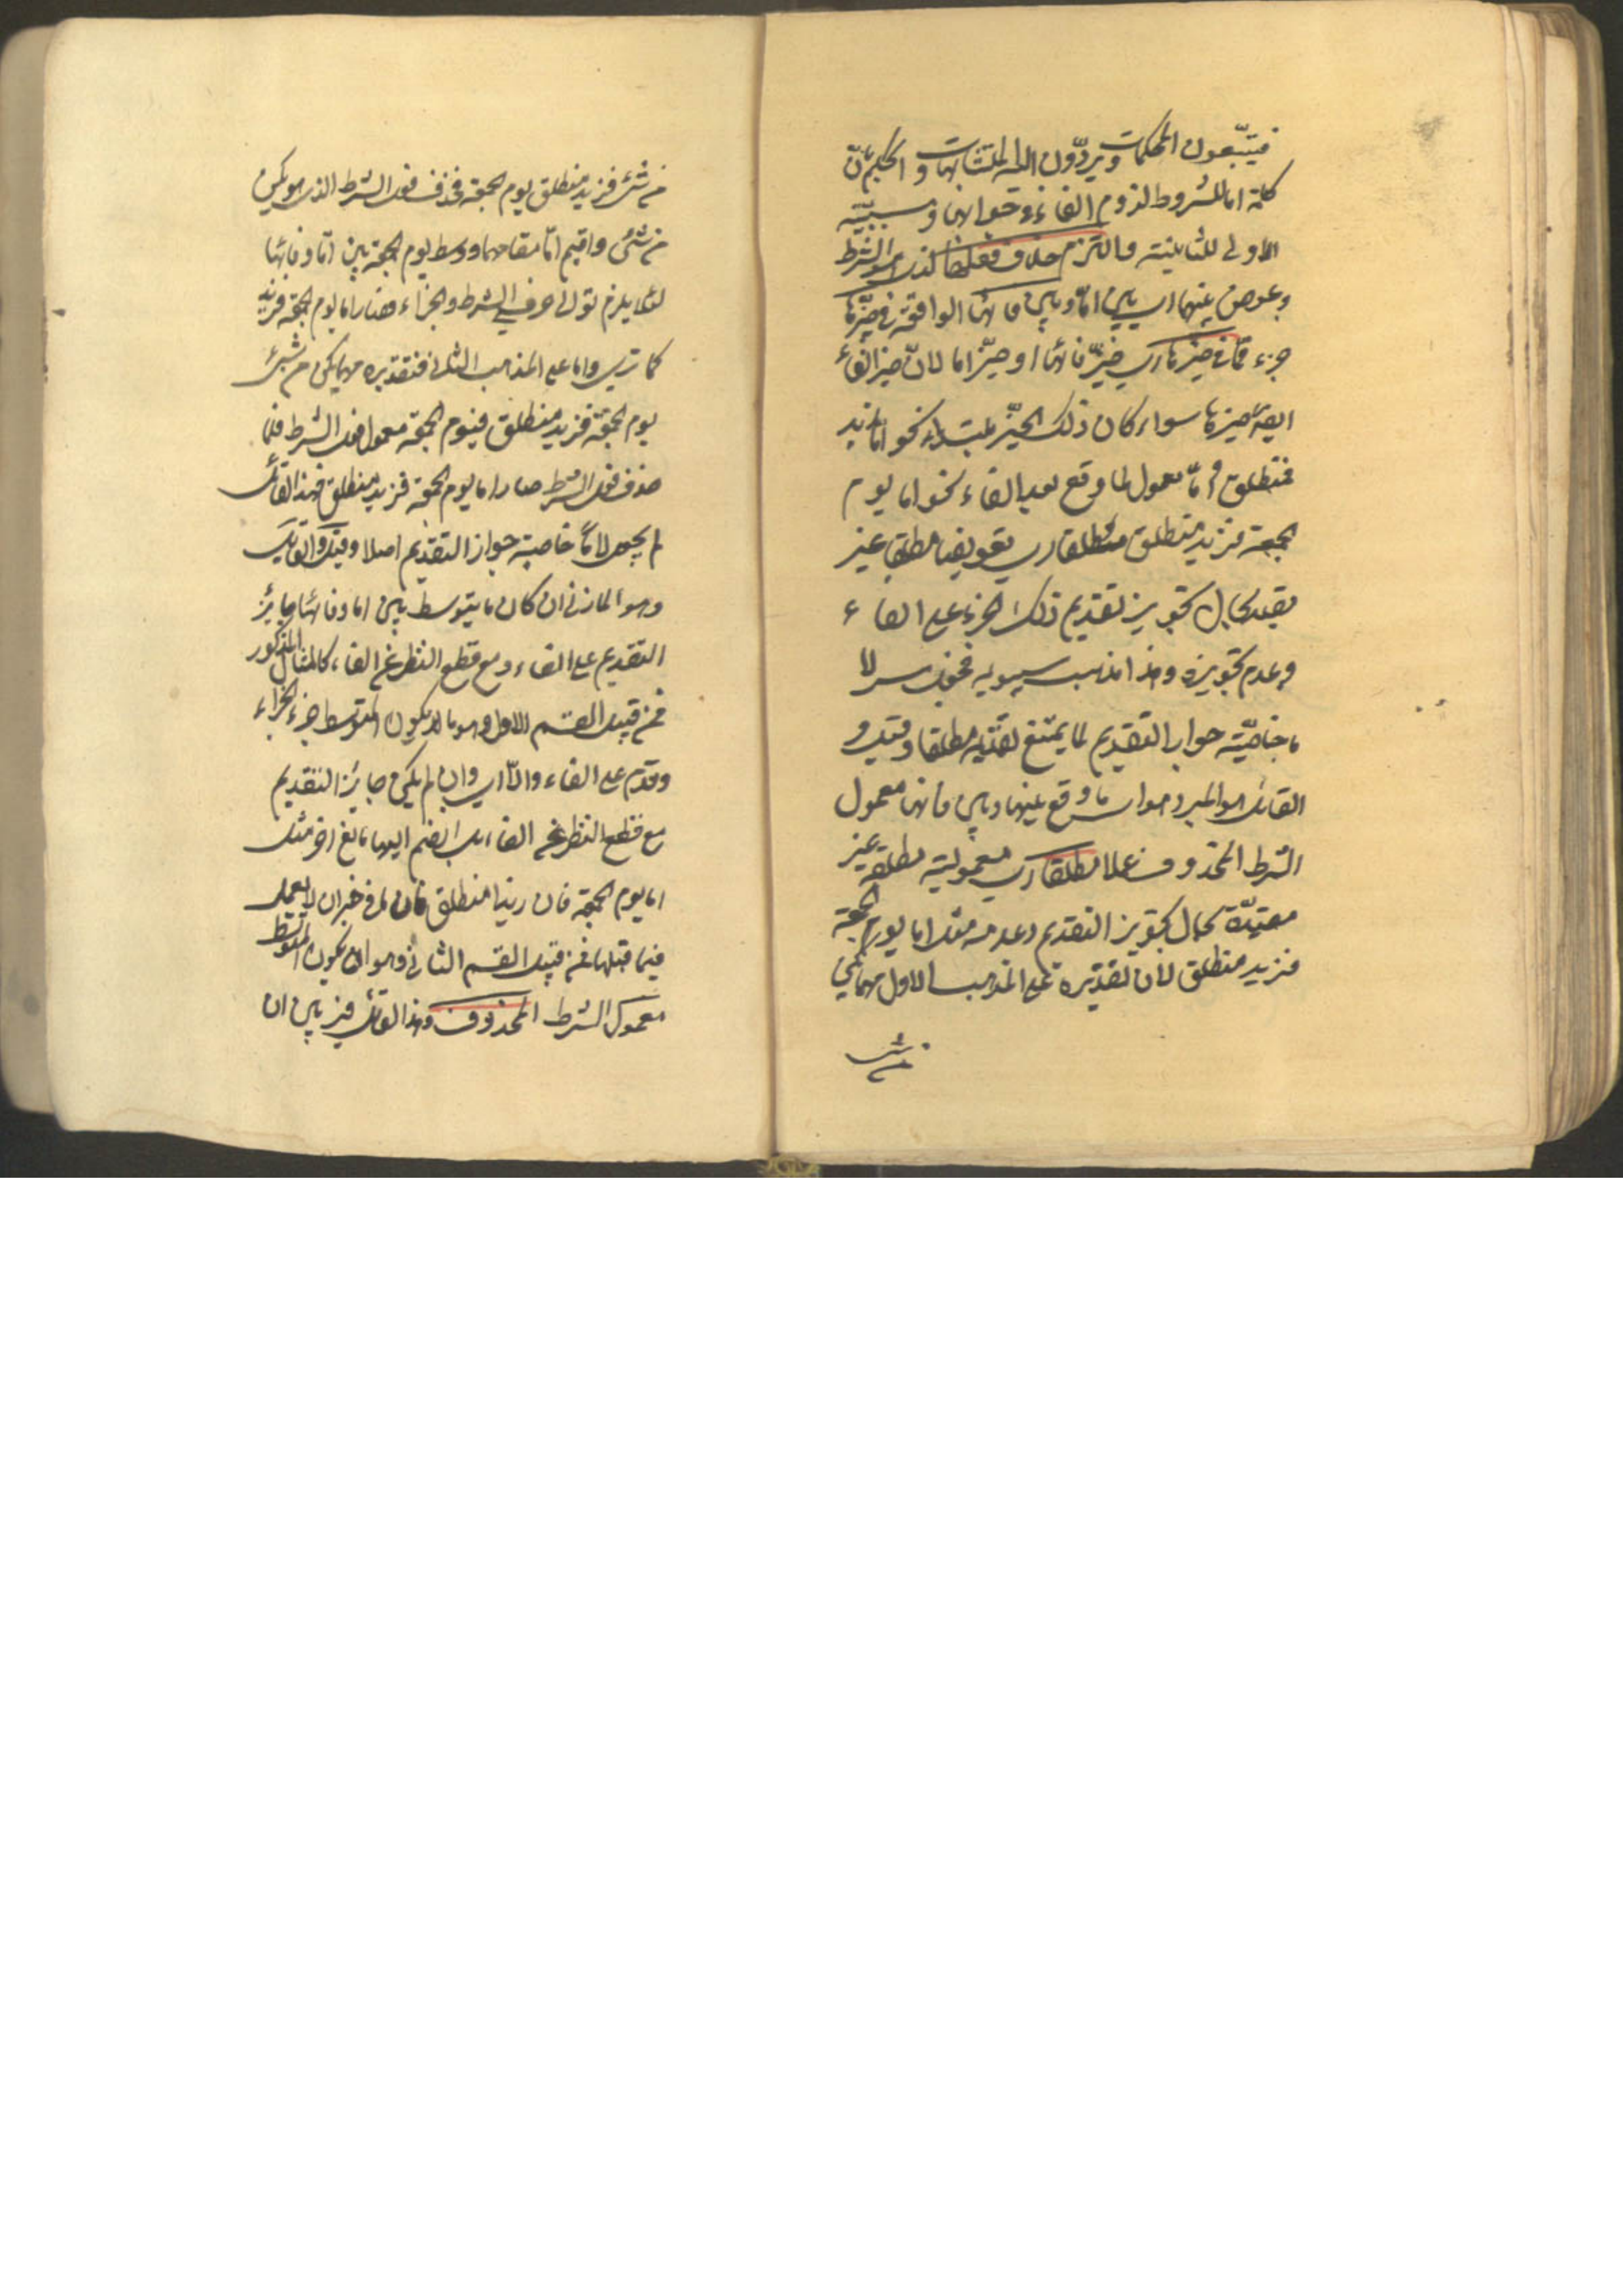 فيتبعون المحكمات ويردّون اليه المتشابهات والحكم بانّ
كلمة اما للشروط لزوم الفاء في جوابها وسببيّة
الاولى للثانية والتزم حذف فعلها الذى هو الشرط
وعوض بينهما اى بين امّا وبين فائها الواقعة في حيّزها
جزء مما في حيزها اى حيّز فائها او حيّز اما لان حيز الفاء
ايضا حيزها سواء كان ذلك الجزء مبتداء نحو اما زيد
فمنطلق او معمول لما وقع بعد الفاء نحو اما يوم
الجمعة فزيد منطلق مطلقا اى تعويضا مطلقا غير
مقيد بحال تجويز تقديم ذلك الجزء على الفاء
وعدم تجويزه وهذا مذهب سيبويه فجعل لاما
خاصيّة جواز التقديم لما يمتنع تقديمه مطلقا وقيل و
القائل هو المبرد هو اى ما وقع بينها وبين فائها معمول
الشرط المحذوف مطلقا اى معمولية مطلقة غير
مقيدة بحال تجويز التقديم وعدمه مثل اما يوم الجمعة
فزيد منطلق لان تقديره على المذهب الاول مهما يكن
من شئ
من شئ فزيد منطلق يوم الجمعة فحذف فعل الشرط الذى هو يكن
من شئ واقيم امّا مقام مهما ووسط يوم الجمعة بين امّا وفائها
لئلا يلزم توالى حرفي الشرط والجزاء فصار اما يوم الجمعة فزيد
كما ترى واما على المذهب الثانى فتقديره مهما يكن من شئ
يوم الجمعة فزيد منطلق فيوم الجمعة معمول فعل الشرط فلما
حذف فعل الشرط صار اما يوم الجمعة فزيد منطلق فهذا القائل
لم يجعل لامّا خاصية جواز التقديم اصلا وقيل والقائل
وهو المازنى ان كان ما يتوسط بين اما وفائها جايز
التقديم على الفاء ومع قطع النظر عن الفاء كالمثال المذكور
فمن قبيل القسم الاول وهو ما يكون المتوسط جزء الجزاء
وقدم على الفاء والّا اى وان لم يكن جايز التقديم
مع قطع النظر عن الفاء بل انضم اليها مانع اخر مثل
اما يوم الجمعة فان زيدا منطلق فان ما في خبر ان لا يعمل
فيما قبلها فمن قبيل القسم الثانى وهو ان يكون المتوسط
معمول الشرط المحذوف وهذا القائل ميز بين ان